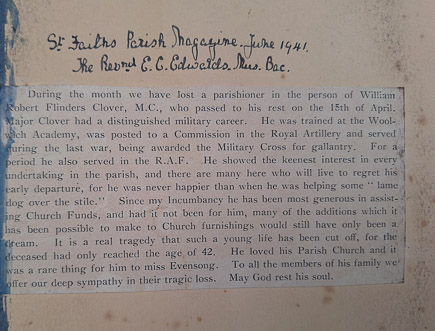 St. Faiths Parish Magazine. June 1941.
The Revnd E. C. Edwards. Mus. Bac.
During the month we have lost a parishioner in the person of William
Robert Flinders Clover, M.C., who passed to his rest on the 15th of April.
Major Clover had a distinguished military career. He was trained at the Wool-
wich Academy, was posted to a Commission in the Royal Artillery and served
during the last war, being awarded the Military Cross for gallantry. For a
period he also served in the R.A.F. He showed the keenest interest in every
undertaking in the parish, and there are many here who will live to regret his
early departure, for he was never happier than when he was helping some "lame
dog over the stile." Since my Incumbency he has been most generous in assist-
ing Church Funds, and had it not been for him, many of the additions which it
has been possible to make to Church furnishings would still have only been a
dream. It is a real tragedy that such a young life has been cut off, for the
deceased had only reached the age of 42. He loved his Parish Church and it
was a rare thing for him to miss Evensong. To all the members of his family we
offer our deep sympathy in their tragic loss. May God rest his soul.